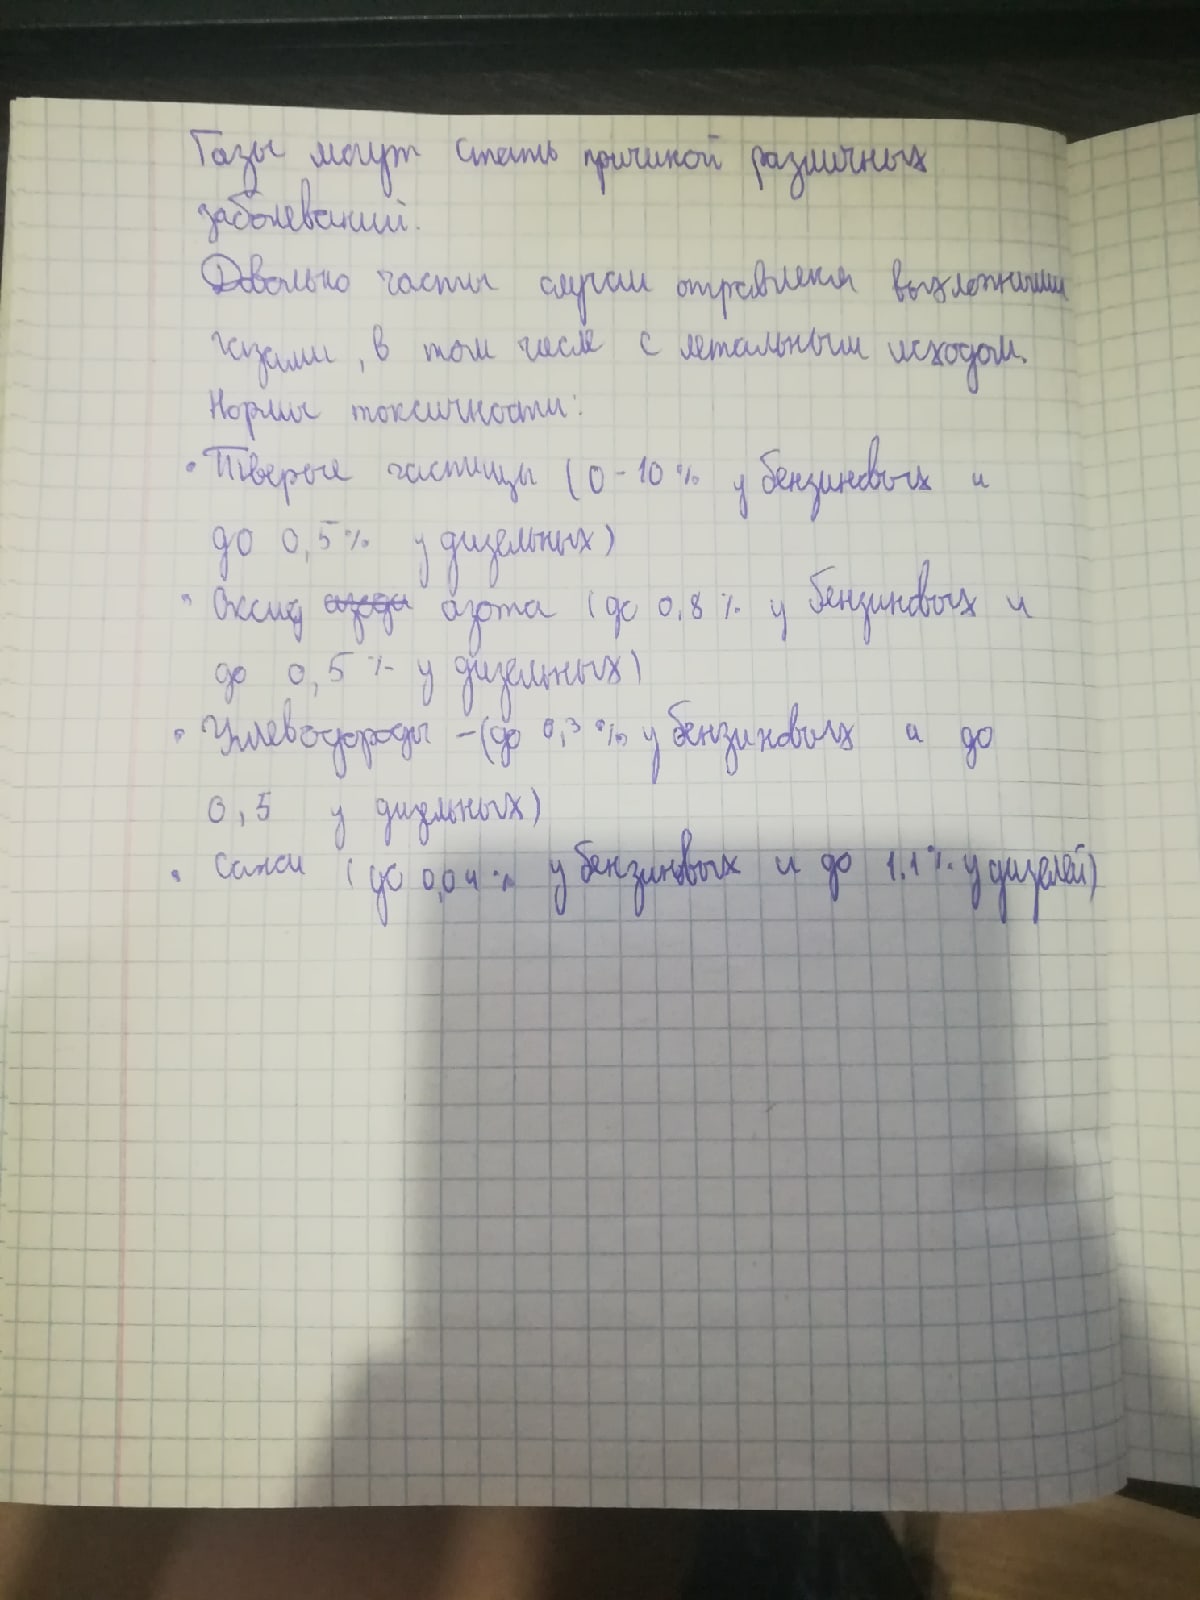 Газы могут стать причиной различных
заболеваний.
Довольно часты случаи отравления выхлопными
газами, в том числе с летальным исходом.
Нормы токсичности:
• Тверые частицы (0-10% у бензиновых и
до 0,5% у дизельных)
• Оксид азота (до 0,8% у бензиновых и
до 0,5% у дизельных)
• Углеводороды -(до 0,3% у бензиновых и до
0,5 у дизльных)
• Сажи (до 0,04% у бензиновых и до 1.1% у дизелей)